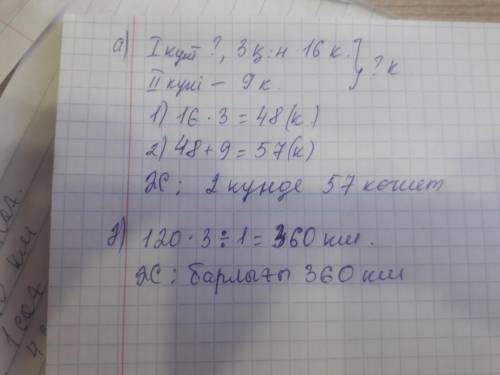 а) I күні ?, 3 қ. н 16 к. } ? к.
II күні – 9 к.
1) 16 · 3 = 48 (к)
2) 48 + 9 = 57 (к)
Ж: 2 күнде 57 көшет
2) 120 · 3 ÷ 1 = 360 км.
Ж: барлығы 360 км
сод
км
1 сод
4